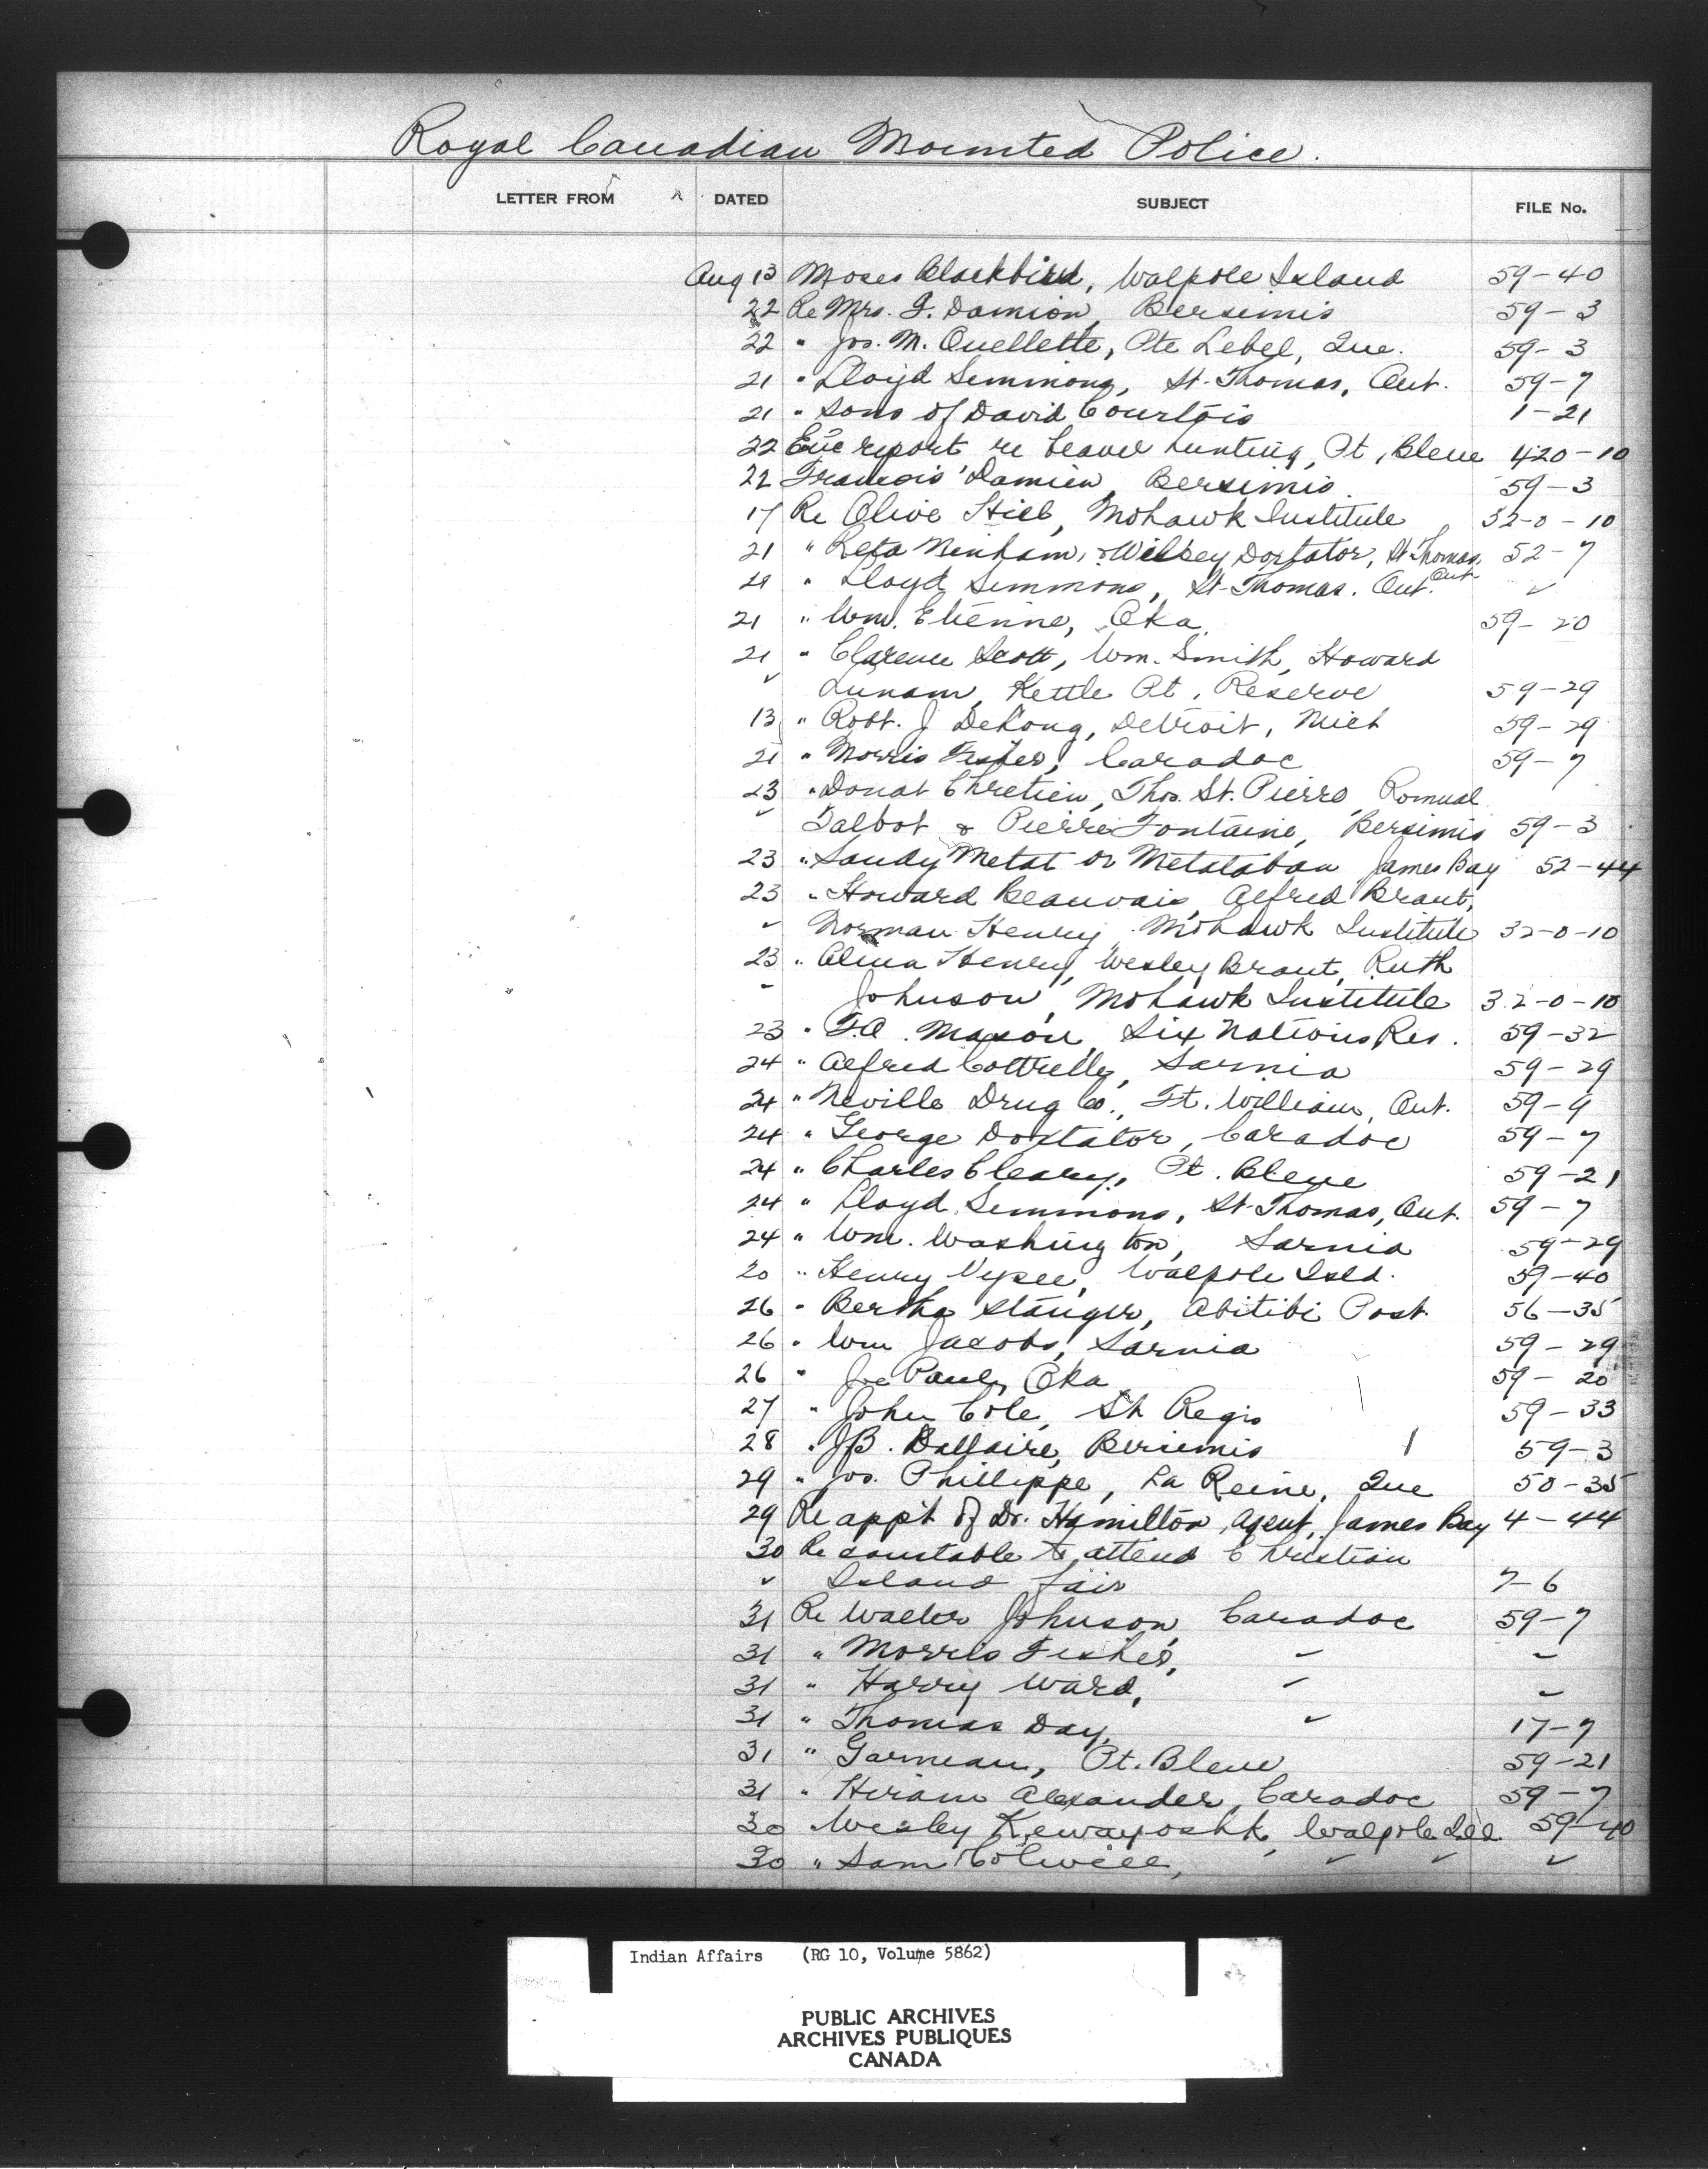 Royal Canadian Mounted Police.
LETTER FROM DATED SUBJECT FILE No.
Aug 13 Moses Blackbird, Walpole Island 59-40
22 Re Mrs. F. Damion, Bersimis 59-3
22 " Jos. M. Ouellette, Pte Lebel, Que. 59-3
21 " Lloyd Simmons, St. Thomas, Ont. 59-7
21 " Sons of David Courtois 1-21
22 report re beaver hunting, Pt. Bleue 420-10
22 Francois Damien, Bersimis. 59-3
17 Re Olive Hill, Mohawk Institute 32-0-10
21 " Reta Ninham, & Wilsey Doxtator, St Thomas, Ont 52-7
21 " Lloyd Simmons, St. Thomas. Ont. "
21 " Wm. Etienne, Oka. 59-20
21 " Clarence Scott, Wm. Smith, Howard
" Lunam, Kettle Pt. Reserve 59-29
13 " Robt. J DeLong, Detroit, Mich 59-29
21 " Morris Fisher, Caradoc 59-7
23 " Donat Chretien, Thos. St. Pierre, Romual
" Talbot & Pierre Fontaine, Bersimis 59-3
23 " Sandy Metat or Metataban James Bay 52-44
23 " Howard Beauvais, Alfred Brant,
" Norman Henry, Mohawk Institute 32-0-10
23 " Alma Henry, Wesley Brant, Ruth
" Johnson, Mohawk Institute 32-0-10
23 " F.A. Mason, Six Nations Res. 59-32
24 " Alfred Cottrelly, Sarnia 59-29
24 " Neville Drug Co., Ft. William, Ont. 59-9
24 " George Doxtator, Caradoc 59-7
24 " Charles Cleary, Pt. Bleue 59-21
24 " Lloyd Simmons, St. Thomas, Ont. 59-7
24 " Wm. Washington, Sarnia 59-29
20 " Henry Nysee, Walpole Isld. 59-40
26 " Bertha Stanger, Abitibi Post. 56-35
26 " Wm Jacobs, Sarnia 59-29
26 " Joe Paul, Oka 59-20
27 " John Cole, St Regis 59-33
28 " J.B. Dallaire, Bersimis 59-3
29 " Jos. Phillippe, La Reine, Que 50-35
29 Re app't of Dr. Hamilton, Agent, James Bay 4-44
30 Re constable to attend Christian
" Island Fair 7-6
31 Re Walter Johnson, Caradoc 59-7
31 " Morris Fisher, " "
31 " Harry Ward, " "
31 " Thomas Day, " 17-7
31 " Garneau, Pt. Bleue 59-21
31 " Hiram Alexander, Caradoc 59-7
30 " Wesley Kewayoshk, Walpole Isl. 59-40
30 " Sam Colwell, " " "
Indian Affairs (RG 10, Volume 5862)
PUBLIC ARCHIVES
ARCHIVES PUBLIQUES
CANADA